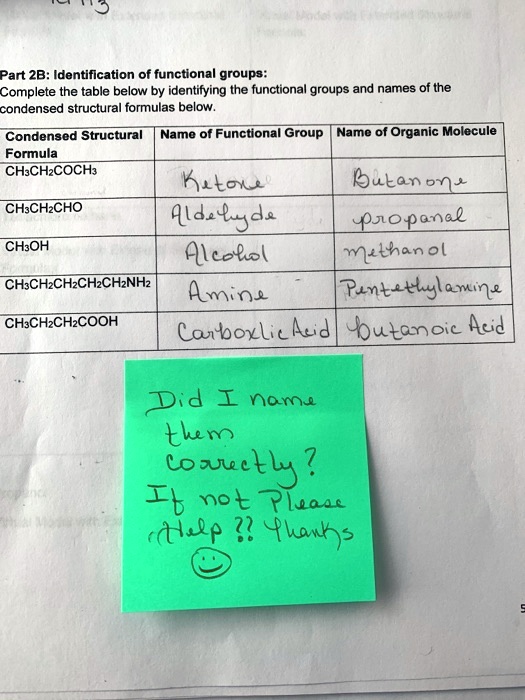 Part 2B: Identification of functional groups:
Complete the table below by identifying the functional groups and names of the
condensed structural formulas below.
Condensed Structural Formula | Name of Functional Group | Name of Organic Molecule
CH3CH2COCH3 | Ketone | Butanone
CH3CH2CHO | Aldehyde | propanal
CH3OH | Alcohol | methanol
CH3CH2CH2CH2CH2NH2 | Amine | Pentethylamine
CH3CH2CH2COOH | Carboxlic Acid | butanoic Acid
Did I name
them
correctly?
If not Please
Help ?? Thanks
5